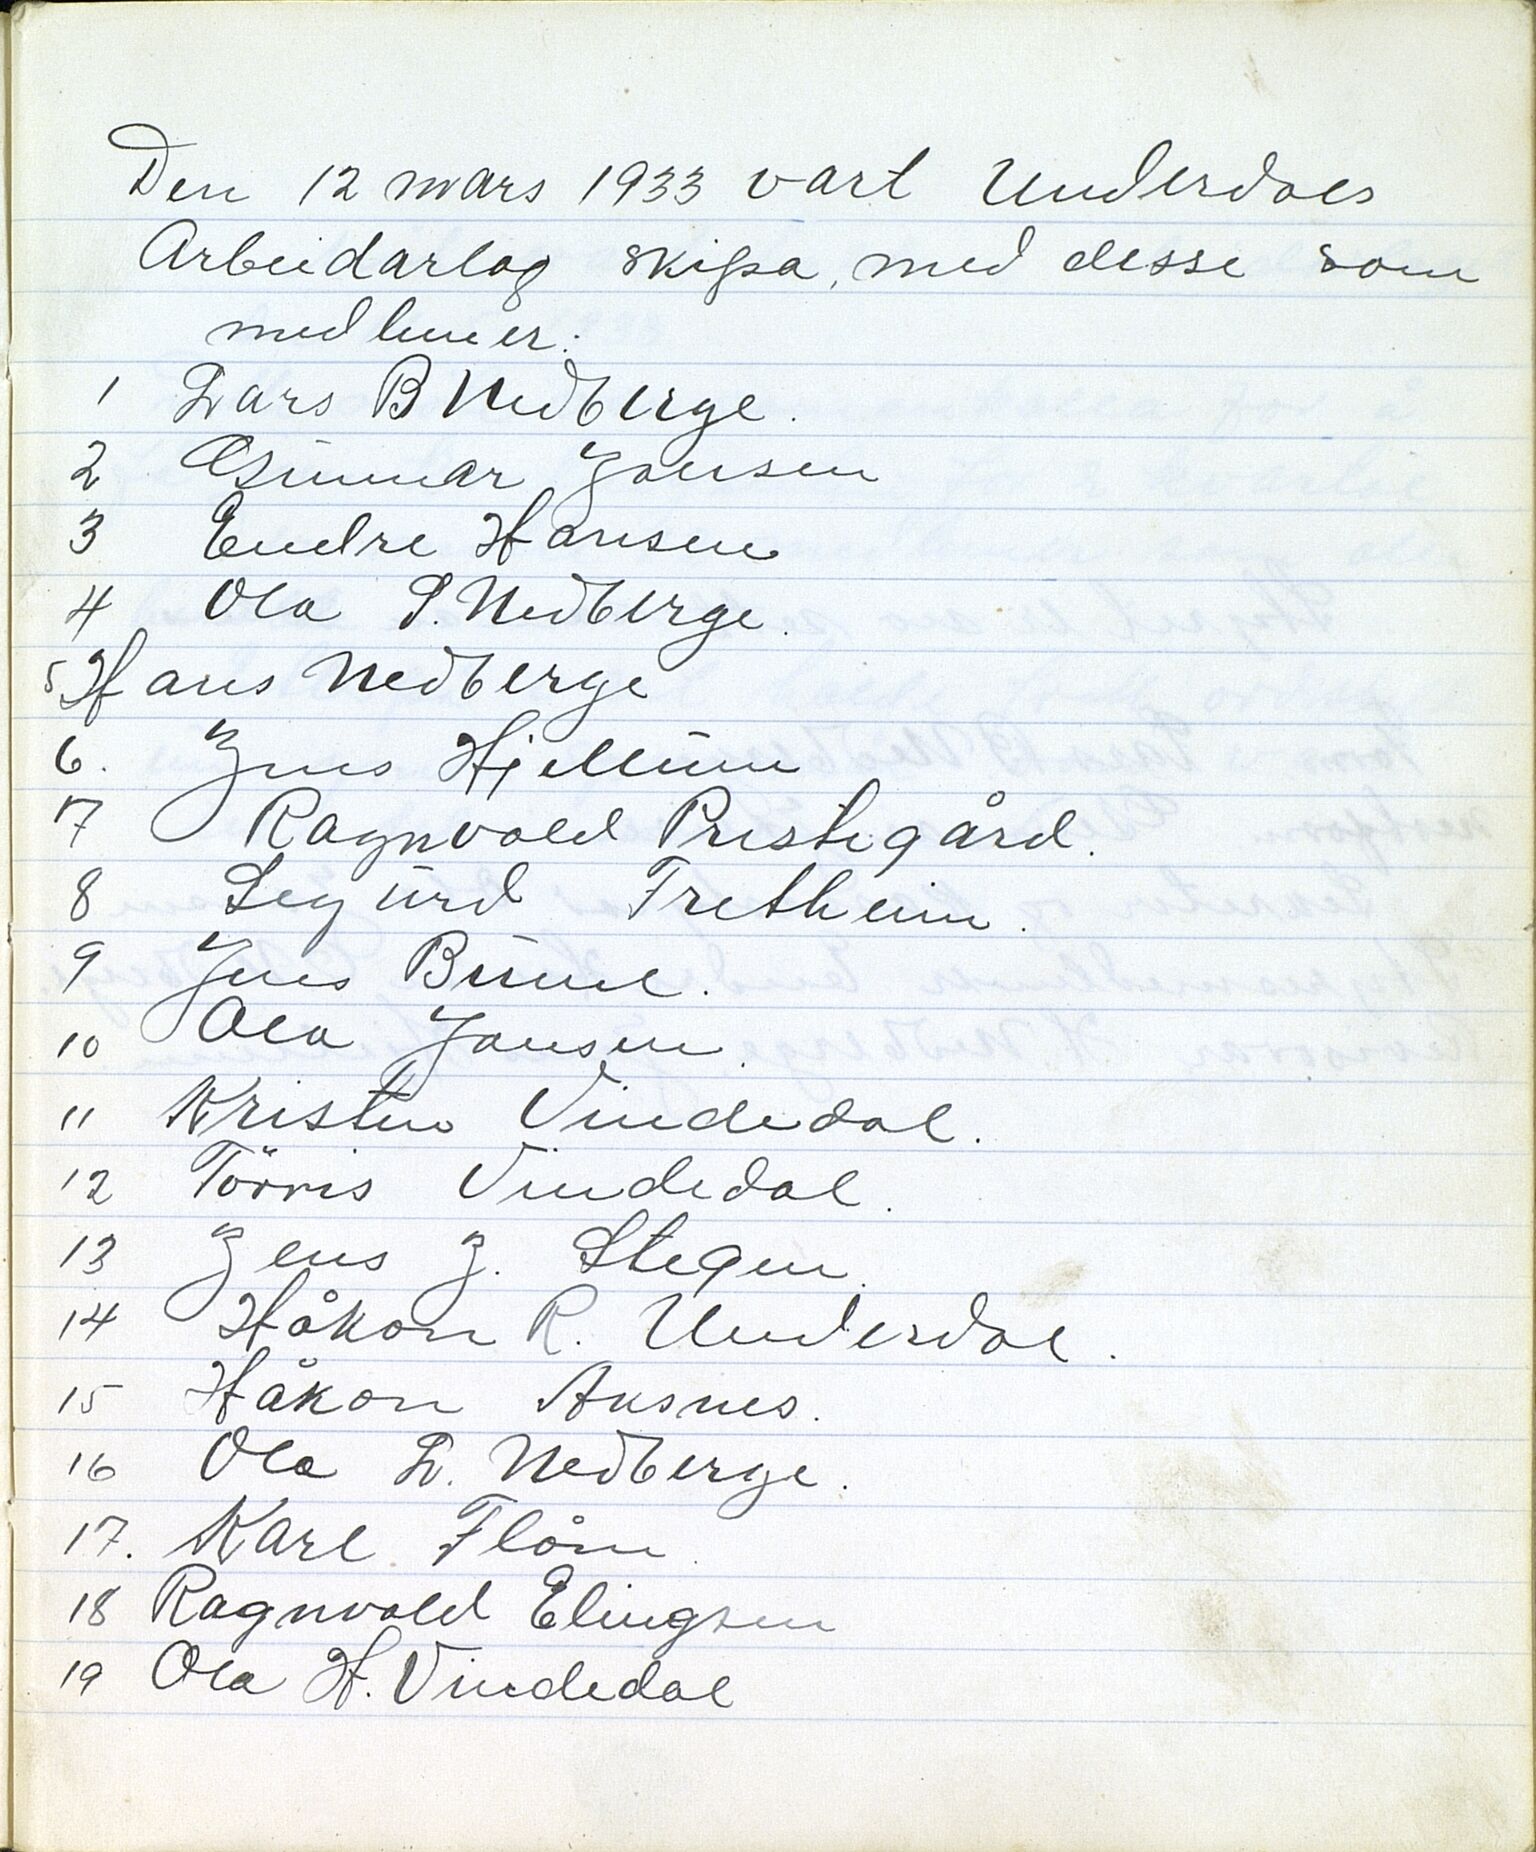 Den 12 mars 1933 vart Underdals
Arbeidarlag skipa, med desse som
medlemer:
1 Lars B Nedberge.
2 Gunnar Jansen
3 Endre Hansen
4 Ola S. Nedberge.
5 Hans Nedberge
6. Jens Hjellum
7 Ragnvald Prestegård.
8 Sigurd Fretheim.
9 Jens Brune.
10 Ola Jansen.
11 Kristen Vindedal.
12 Törris Vindedal.
13 Jens J. Stegen.
14 Håkon R. Underdal.
15 Håkon Aksnes.
16 Ola L. Nedberge.
17. Karl Flåm.
18 Ragnvald Elingsen
19 Ola H. Vindedal